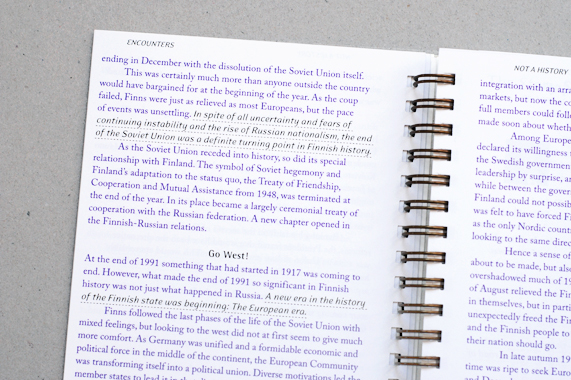 ENCOUNTERS
ending in December with the dissolution of the Soviet Union itself.
This was certainly much more than anyone outside the country
would have bargained for at the beginning of the year. As the coup
failed, Finns were just as relieved as most Europeans, but the pace
of events was unsettling. In spite of all uncertainty and fears of
continuing instability and the rise of Russian nationalism, the end
of the Soviet Union was a definite turning point in Finnish history.
As the Soviet Union receded into history, so did its special
relationship with Finland. The symbol of Soviet hegemony and
Finland's adaptation to the status quo, the Treaty of Friendship,
Cooperation and Mutual Assistance from 1948, was terminated at
the end of the year. In its place became a largely ceremonial treaty of
cooperation with the Russian federation. A new chapter opened in
the Finnish-Russian relations.
Go West!
At the end of 1991 something that had started in 1917 was coming to
end. However, what made the end of 1991 so significant in Finnish
history was not just what happened in Russia. A new era in the history
of the Finnish state was beginning: The European era.
Finns followed the last phases of the life of the Soviet Union with
mixed feelings, but looking to the west did not at first seem to give much
more comfort. As Germany was unified and a formidable economic and
political force in the middle of the continent, the European Community
was transforming itself into a political union. Diverse motivations led the
member states to lead it in the
NOT A HISTORY
integration with an arra
markets, but now the co
full members could follo
made soon about wheth
Among Europe
declared its willingness t
the Swedish government
leadership by surprise, an
while between the gover
Finland could not possib
was felt to have forced Fi
as the only Nordic count
looking to the same direc
Hence a sense of
about to be made, but also
overshadowed much of 19
of August relieved the Fin
in themselves, but in parti
unexpectedly freed the Fi
and the Finnish people to
their nation should go.
In late autumn 19
time was ripe to seek Euro